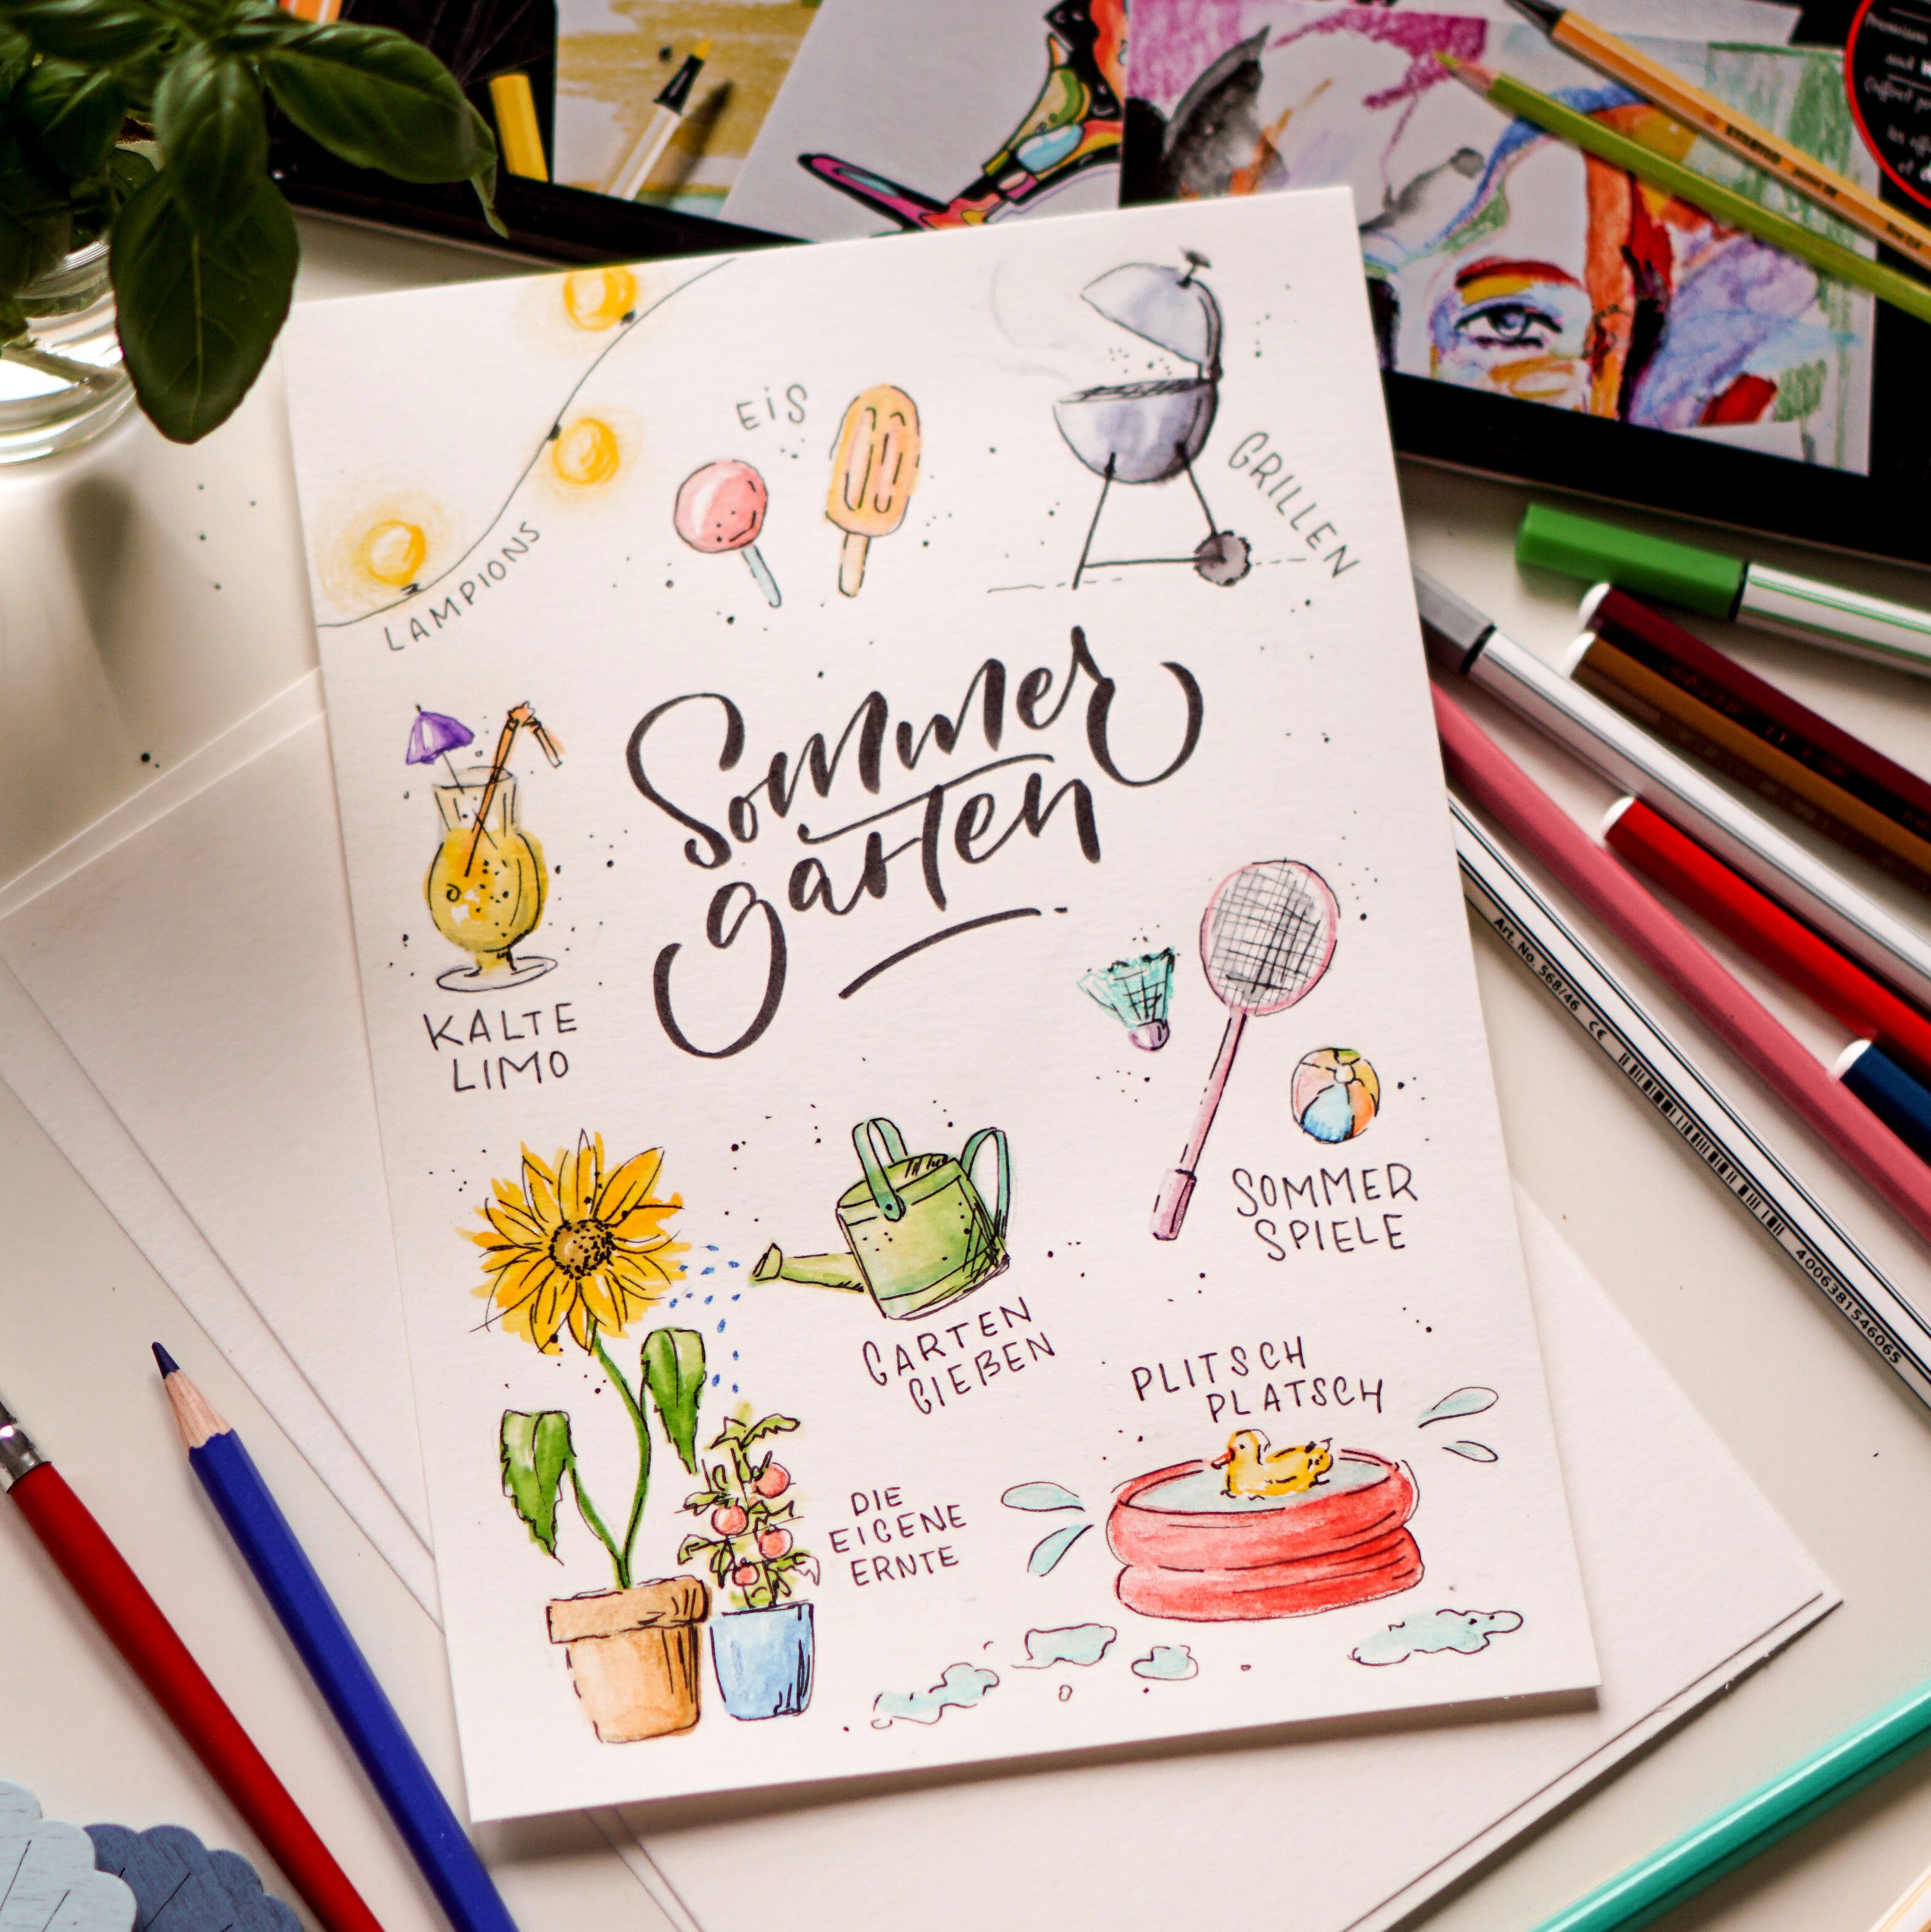 LAMPIONS
EIS
GRILLEN
Sommer
garten
KALTE
LIMO
SOMMER
SPIELE
GARTEN
GIEßEN
PLITSCH
PLATSCH
DIE
EIGENE
ERNTE
Art. No. 568/46 CE
4006381546065